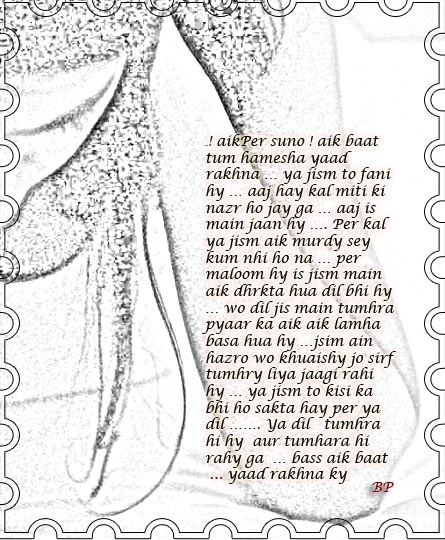 .! aikPer suno ! aik baat
tum hamesha yaad
rakhna ... ya jism to fani
hy ... aaj hay kal miti ki
nazr ho jay ga ... aaj is
main jaan hy .... Per kal
ya jism aik murdy sey
kum nhi ho na ... per
maloom hy is jism main
aik dhrkta hua dil bhi hy
... wo dil jis main tumhra
pyaar ka aik aik lamha
basa hua hy ...jsim ain
hazro wo khuaishy jo sirf
tumhry liya jaagi rahi
hy ... ya jism to kisi ka
bhi ho sakta hay per ya
dil ....... Ya dil tumhra
hi hy aur tumhara hi
rahy ga ... bass aik baat
... yaad rakhna ky
BP